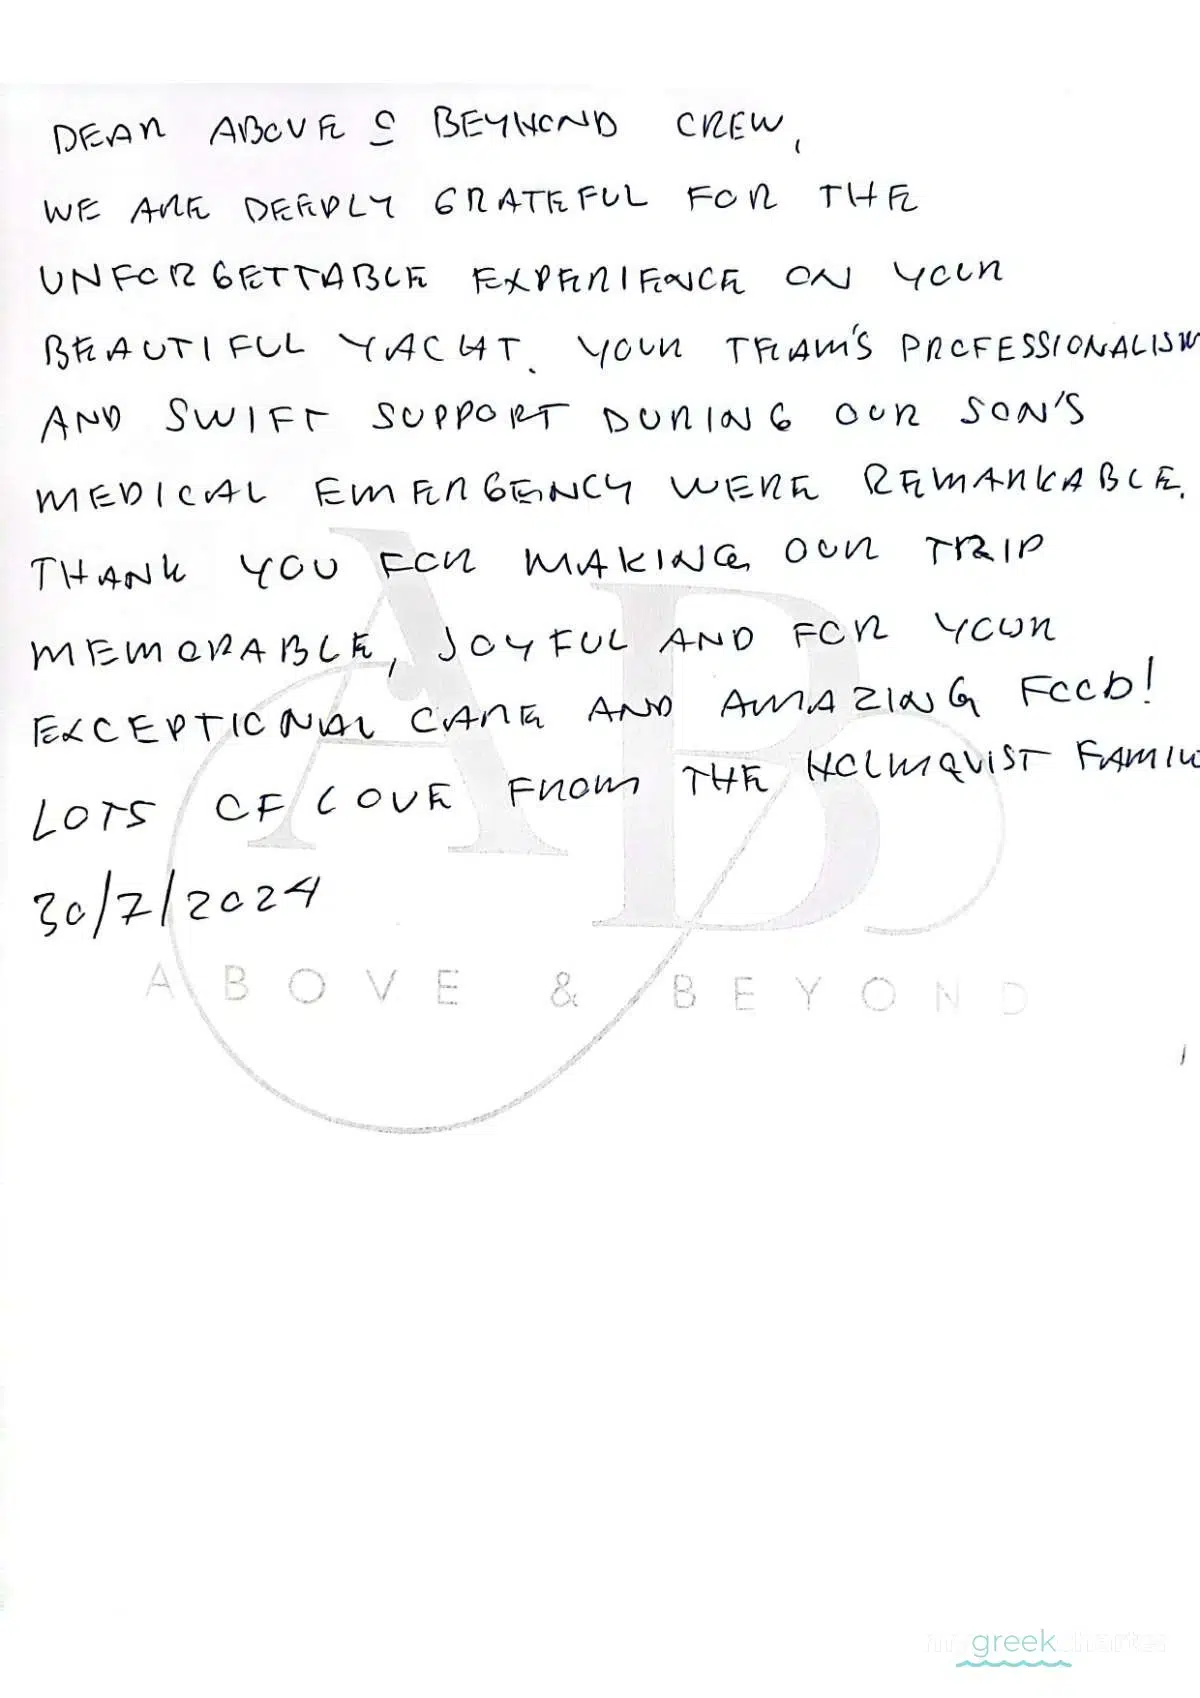 DEAR ABOVE & BEYHOND CREW,
WE ARE DEEPLY GRATEFUL FOR THE
UNFORGETTABLE EXPERIENCE ON YOUR
BEAUTIFUL YACHT. YOUR TEAM'S PROFESSIONALISM
AND SWIFT SUPPORT DURING OUR SON'S
MEDICAL EMERGENCY WERE REMARKABLE.
THANK YOU FOR MAKING OUR TRIP
MEMORABLE, JOYFUL AND FOR YOUR
EXCEPTIONAL CARE AND AMAZING FOOD!
LOTS OF LOVE FROM THE HOLMQVIST FAMILY
30/7/2024
AB
ABOVE & BEYOND
mygreekcharter